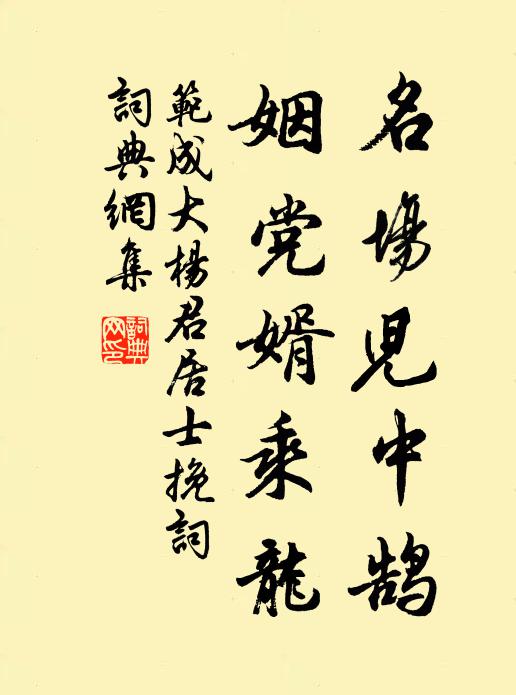 名場兒中鵠
姻党婿乘龍
範成大楊君居士挽詞
詞典網集
詞典
网印